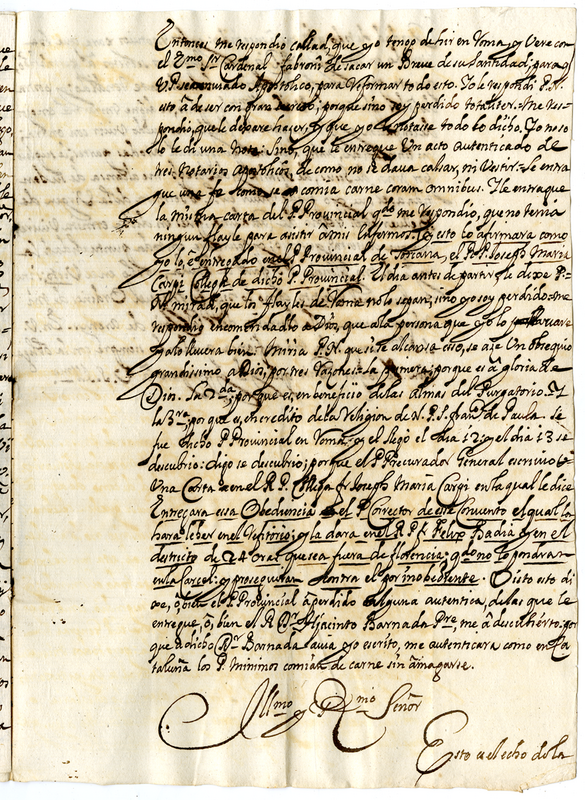 Entonces me respondio callad, que yo tengo de hir en Roma, y Vere con
el Emo. Sr. Cardenal fabroni de sacar un Breve de su santidad, para q
V.P. sea enviado Apostolico, para Reformar todo esto. Jo le respondi P. N.
esto à de ser con gran secreto, porque sino soy perdido totaliter. Me res-
pondio, que le dexare hacer, y que yo le notasse todo lo dicho. Jo no so
lo le di una nota: Sino, que le entregue Un acto autenticado de
tres Notarios apostolicos de como no se dava calsar, ni Vestir: Se
que una se comia carne coram omnibus. Jle entregue
la misma carta del P. Provincial qdo. me Respondio, que no tenia
ningun flayle para asistir à mis Enfermos. Jo esto lo afirmara como
yo lo è entregado en el P. Provincial de Toscana, el R. P. Joseph Maria
Carpi Collega de dicho P. Provincial. El dia antes de partir, le dixe P.
N. mirad, que los flayles de Roma no lo sepan, sino yo soy perdido: me
respondio encomendadlo a Dios, que ala persona que yo lo
ya lo lleverà bien. Miria P. N. que si se alcansa esso, se aze Un obsequio
grandissimo a Dios, por tres Razones: La primera; porque es à gloria de
Dios. La 2da., porque es, en beneficio de las almas del Purgatorio. Y
la 3ra, por que es, en credito de la Religion de N. P. S. Franco. de Paula. se
fue dicho P. Provincial en Roma, y el llego el dia 12; y el dia 13 se
descubrio: digo se descubrio; porque el P. Procurador General escrivio
Una Carta en el R. P. Collega fr Joseph Maria Carpi en la qual le dice
Entregara essa Obediencia en el P. Corrector de esse Convento el qual la
hara leher en el Refitorio, y la dara en el R. P. f. Felix Badia, y en el
destricto de 24 oras que sea fuera de florencia; qdo. no lo pondran
en la Carcel; y prosequitan contra el por inobediente. Visto esto di
xe, ò bien el P. Provincial à perdido alguna autentica, delas que le
entregue, ò, bien el R. Dr. Hjacinto Barnada Pre., me à descubierto: por
que à dicho Dr. Barnada avia yo escrito, me autenticara como en Ca
taluña los P. minimos comian de carne sin amagarse.
Illmo. y Rmo. Señor
Esto a el echo de la